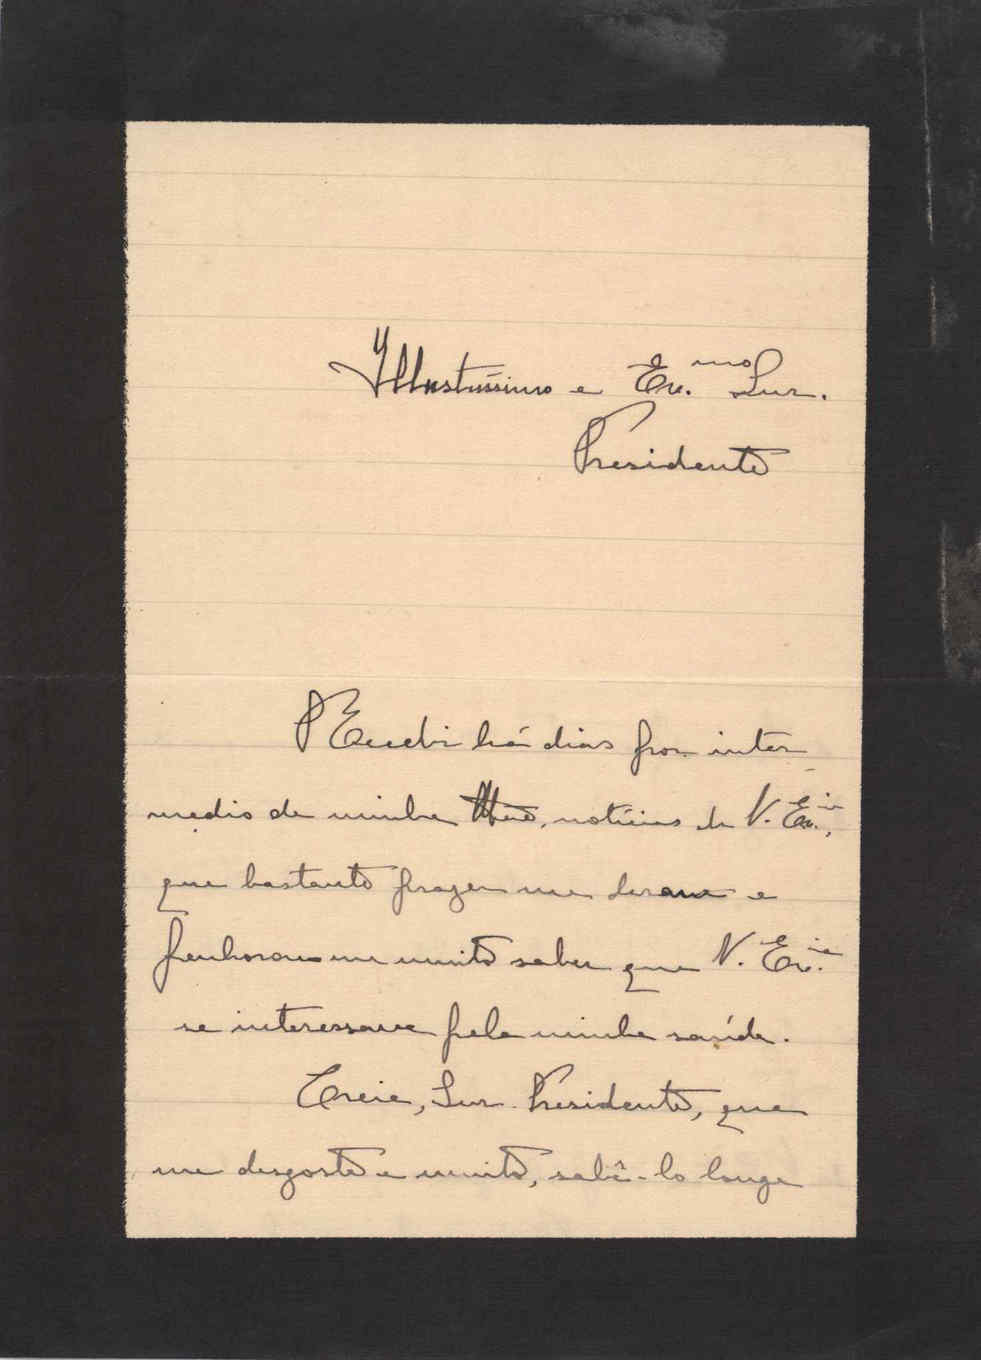 Illustrissimo e Ex.mo Snr.
Presidente
Recebi há dias por inter
medio de minha noticias de V. Ex.ia,
que bastante prazer me deram e
penhorou-me muito saber que V. Ex.ia
se interessava pela minha saúde.
Creia, Snr. Presidente, que
me desgosta e muito, sabê-lo longe